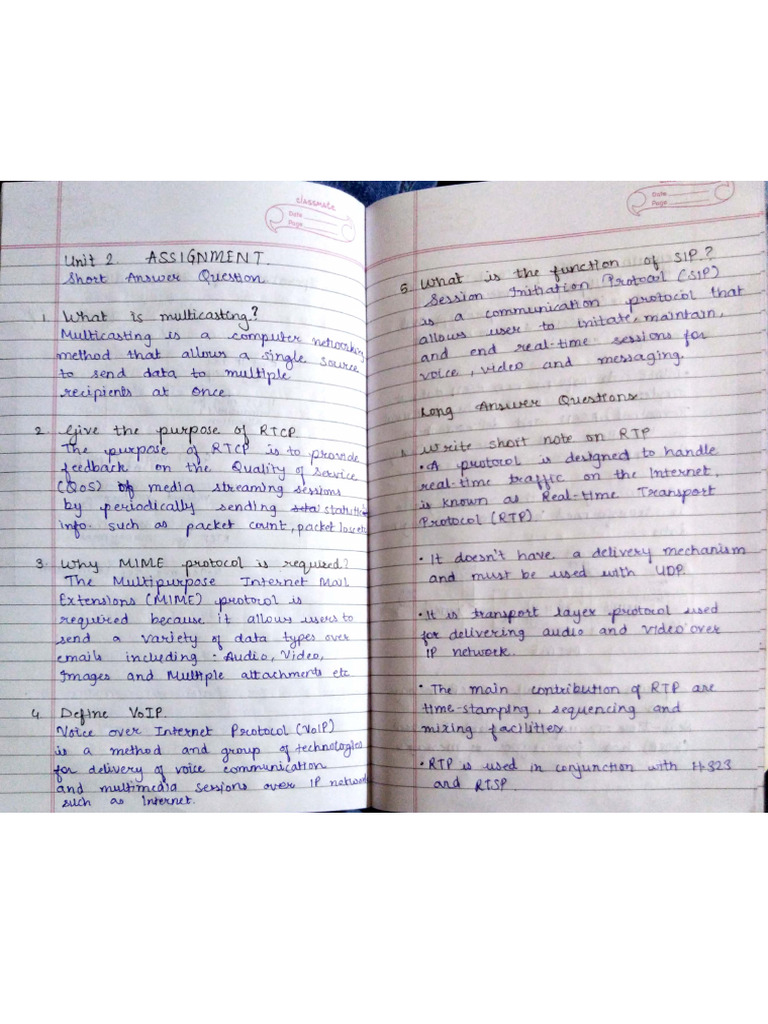 classmate
Date
Page
Unit 2. ASSIGNMENT.
Short Answer Question
1. What is multicasting?
Multicasting is a computer networking
method that allows a single source
to send data to multiple
recipients at once.
2. Give the purpose of RTCP.
The purpose of RTCP is to provide
feedback on the Quality of Service
(QoS) of media streaming sessions
by periodically sending
info. such as packet count, packet loss etc
3. Why MIME protocol is required?
The Multipurpose Internet Mail
Extensions (MIME) protocol is
required because it allows users to
send a variety of data types over
emails including : Audio, Video,
Images and Multiple attachments etc
4. Define VoIP.
Voice over Internet Protocol (VoIP)
is a method and group of technologies
for delivery of voice communication
and multimedia sessions over IP network
such as Internet.
Date
Page
5. What is the function of SIP?
Session Initiation Protocol (SIP)
is a communication protocol that
allows user to initate, maintain,
and end real-time sessions for
voice, video and messaging.
Long Answer Questions.
1. Write short note on RTP
• A protocol is designed to handle
real-time traffic on the Internet,
is known as Real-time Transport
Protocol (RTP).
• It doesn't have a delivery mechanism
and must be used with UDP.
• It is transport layer protocol used
for delivering audio and video over
IP network.
• The main contribution of RTP are
time-stamping, sequencing and
mixing facilities.
• RTP is used in conjunction with H.323
and RTSP